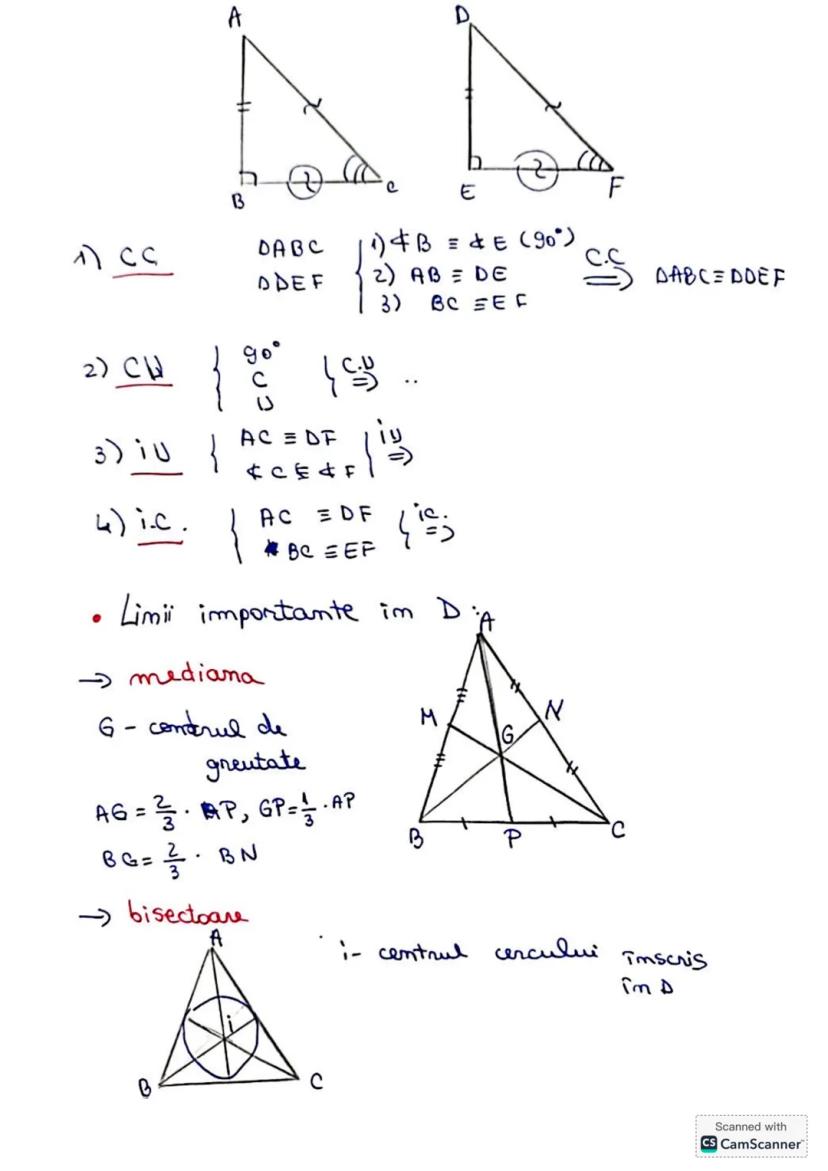 A
D
B
C
E
F
1) CC
ΔABC
ΔDEF
1) ∢B ≡ ∢E (90°)
2) AB ≡ DE
3) BC ≡ EF
C.C
⇒ ΔABC ≡ ΔDEF
2) CU { 90°
C
U
} C.U ⇒ ..
3) iU { AC ≡ DF
∢C ≡ ∢F
iU ⇒
4) i.C. { AC ≡ DF
BC ≡ EF } ic. ⇒
• Linii importante în Δ:
→ mediana
G - centrul de
greutate
AG = 2/3 · AP, GP = 1/3 · AP
BG = 2/3 · BN
A
M
N
G
B
P
C
→ bisectoare
A
i
B
C
i - centrul cercului înscris
în Δ
Scanned with
CS CamScanner